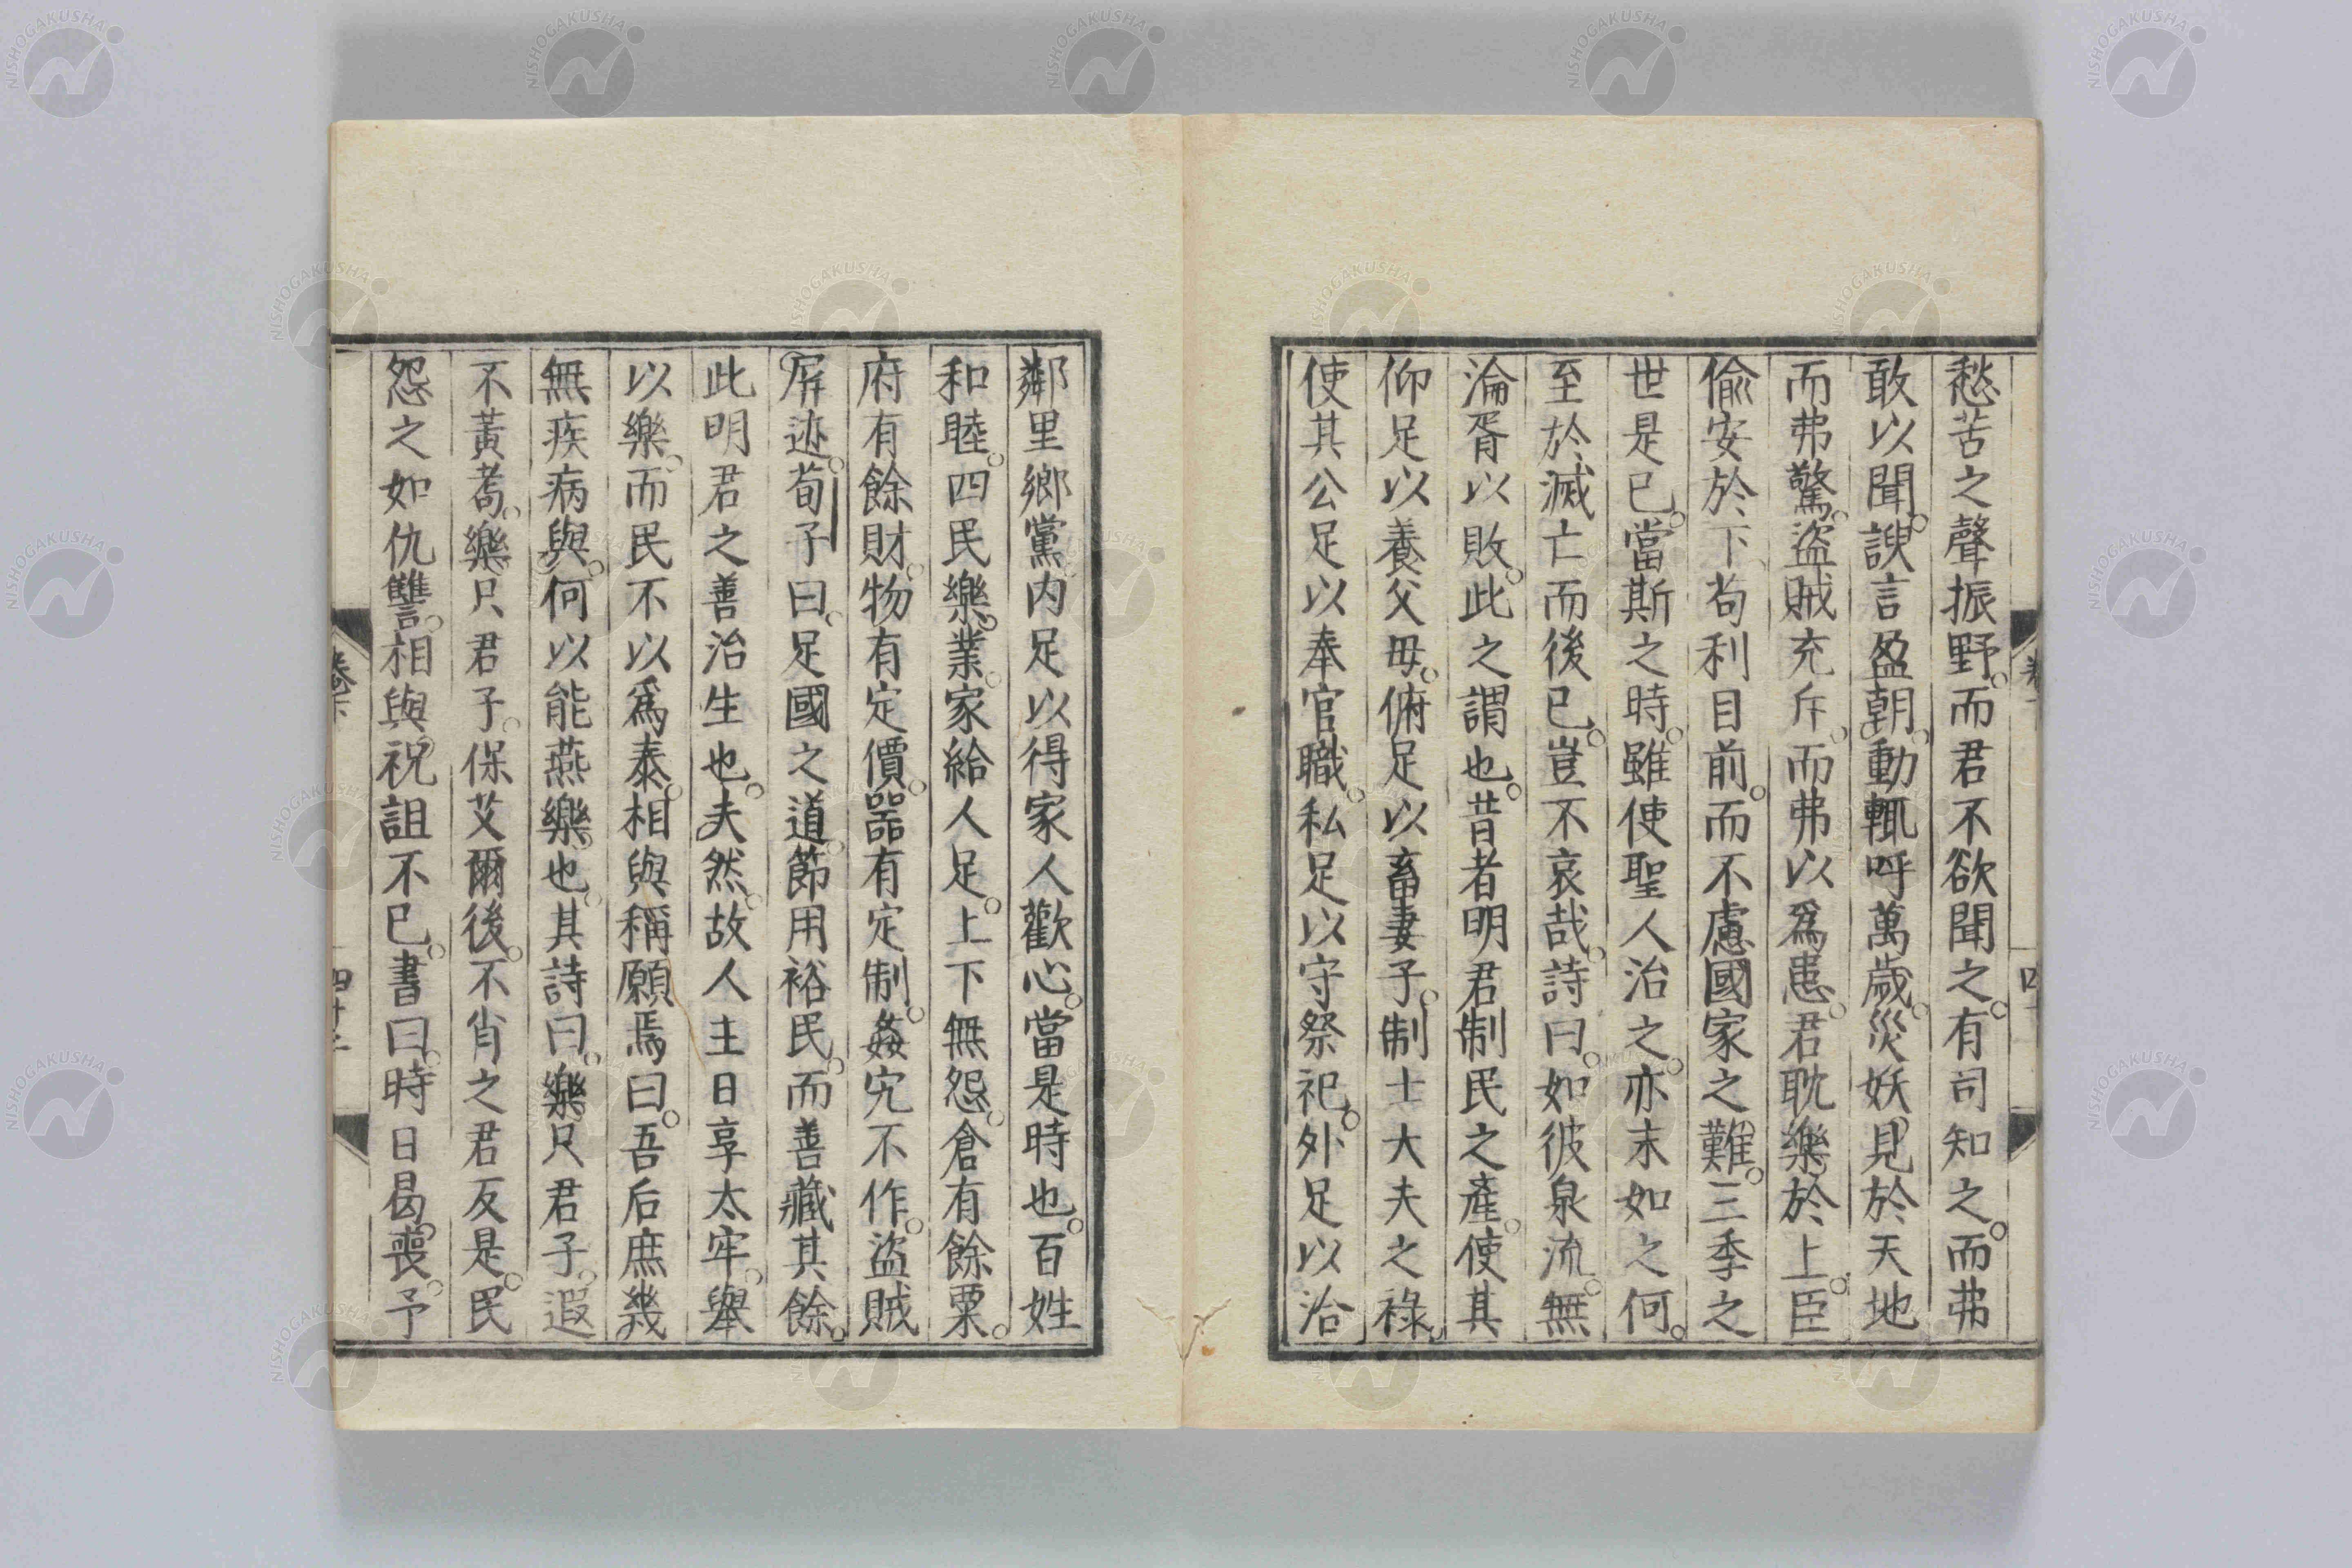 愁苦之聲振野。而君不欲聞之。有司知之。而弗
敢以聞。諛言盈朝。動輒呼萬歲。災妖見於天地
而弗驚。盜賊充斥。而弗以爲患。君耽樂於上。臣
偷安於下。苟利目前。而不慮國家之難。三季之
世是已。當斯之時。雖使聖人治之。亦末如之何。
至於滅亡而後已。豈不哀哉。詩曰。如彼泉流。無
淪胥以敗。此之謂也。昔者明君制民之產。使其
仰足以養父母。俯足以畜妻子。制士大夫之祿。
使其公足以奉官職。私足以守祭祀。外足以治
鄰里鄉黨内足以得家人歡心。當是時也。百姓
和睦。四民樂業。家給人足。上下無怨。倉有餘粟。
府有餘財。物有定價。器有定制。姦宄不作。盜賊
屏迹。荀子曰。足國之道。節用裕民。而善藏其餘。
此明君之善治生也。夫然。故人主日享太牢。舉
以樂。而民不以爲泰。相與稱願焉曰。吾后庶幾
無疾病與。何以能燕樂也。其詩曰。樂只君子。遐
不黃耇。樂只君子。保艾爾後。不肖之君反是。民
怨之如仇讐。相與祝詛不已。書曰。時日曷喪。予
NISHOGAKUSHA